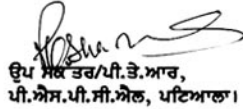 ਉਪ ਸਕੱਤਰ/ਪੀ.ਤੇ.ਆਰ,
ਪੀ.ਐਸ.ਪੀ.ਸੀ.ਐਲ, ਪਟਿਆਲਾ।